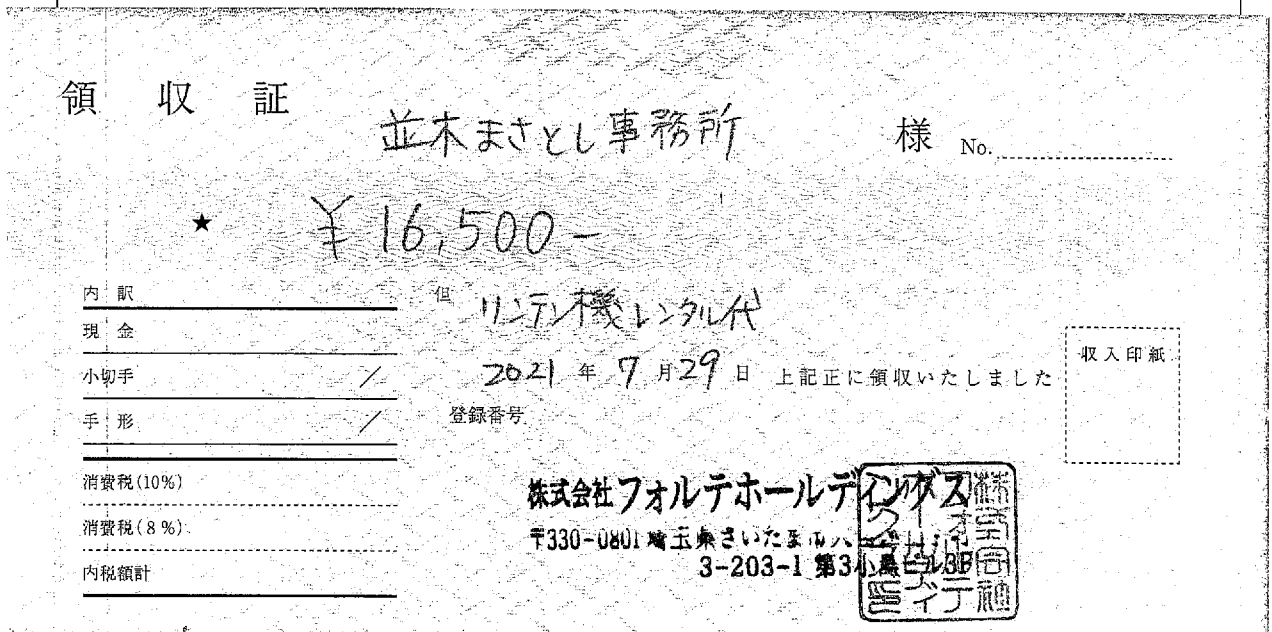 領収証
並木まさとし事務所 様 No.
★ ¥16,500-
内訳
現金
小切手 /
手形 /
消費税(10%)
消費税(8%)
内税額計
但 リンテン機レンタル代
2021年7月29日 上記正に領収いたしました
登録番号
収入印紙
株式会社フォルテホールディングス
〒330-0801 埼玉県さいたま市大
3-203-1 第3小島ビル3F